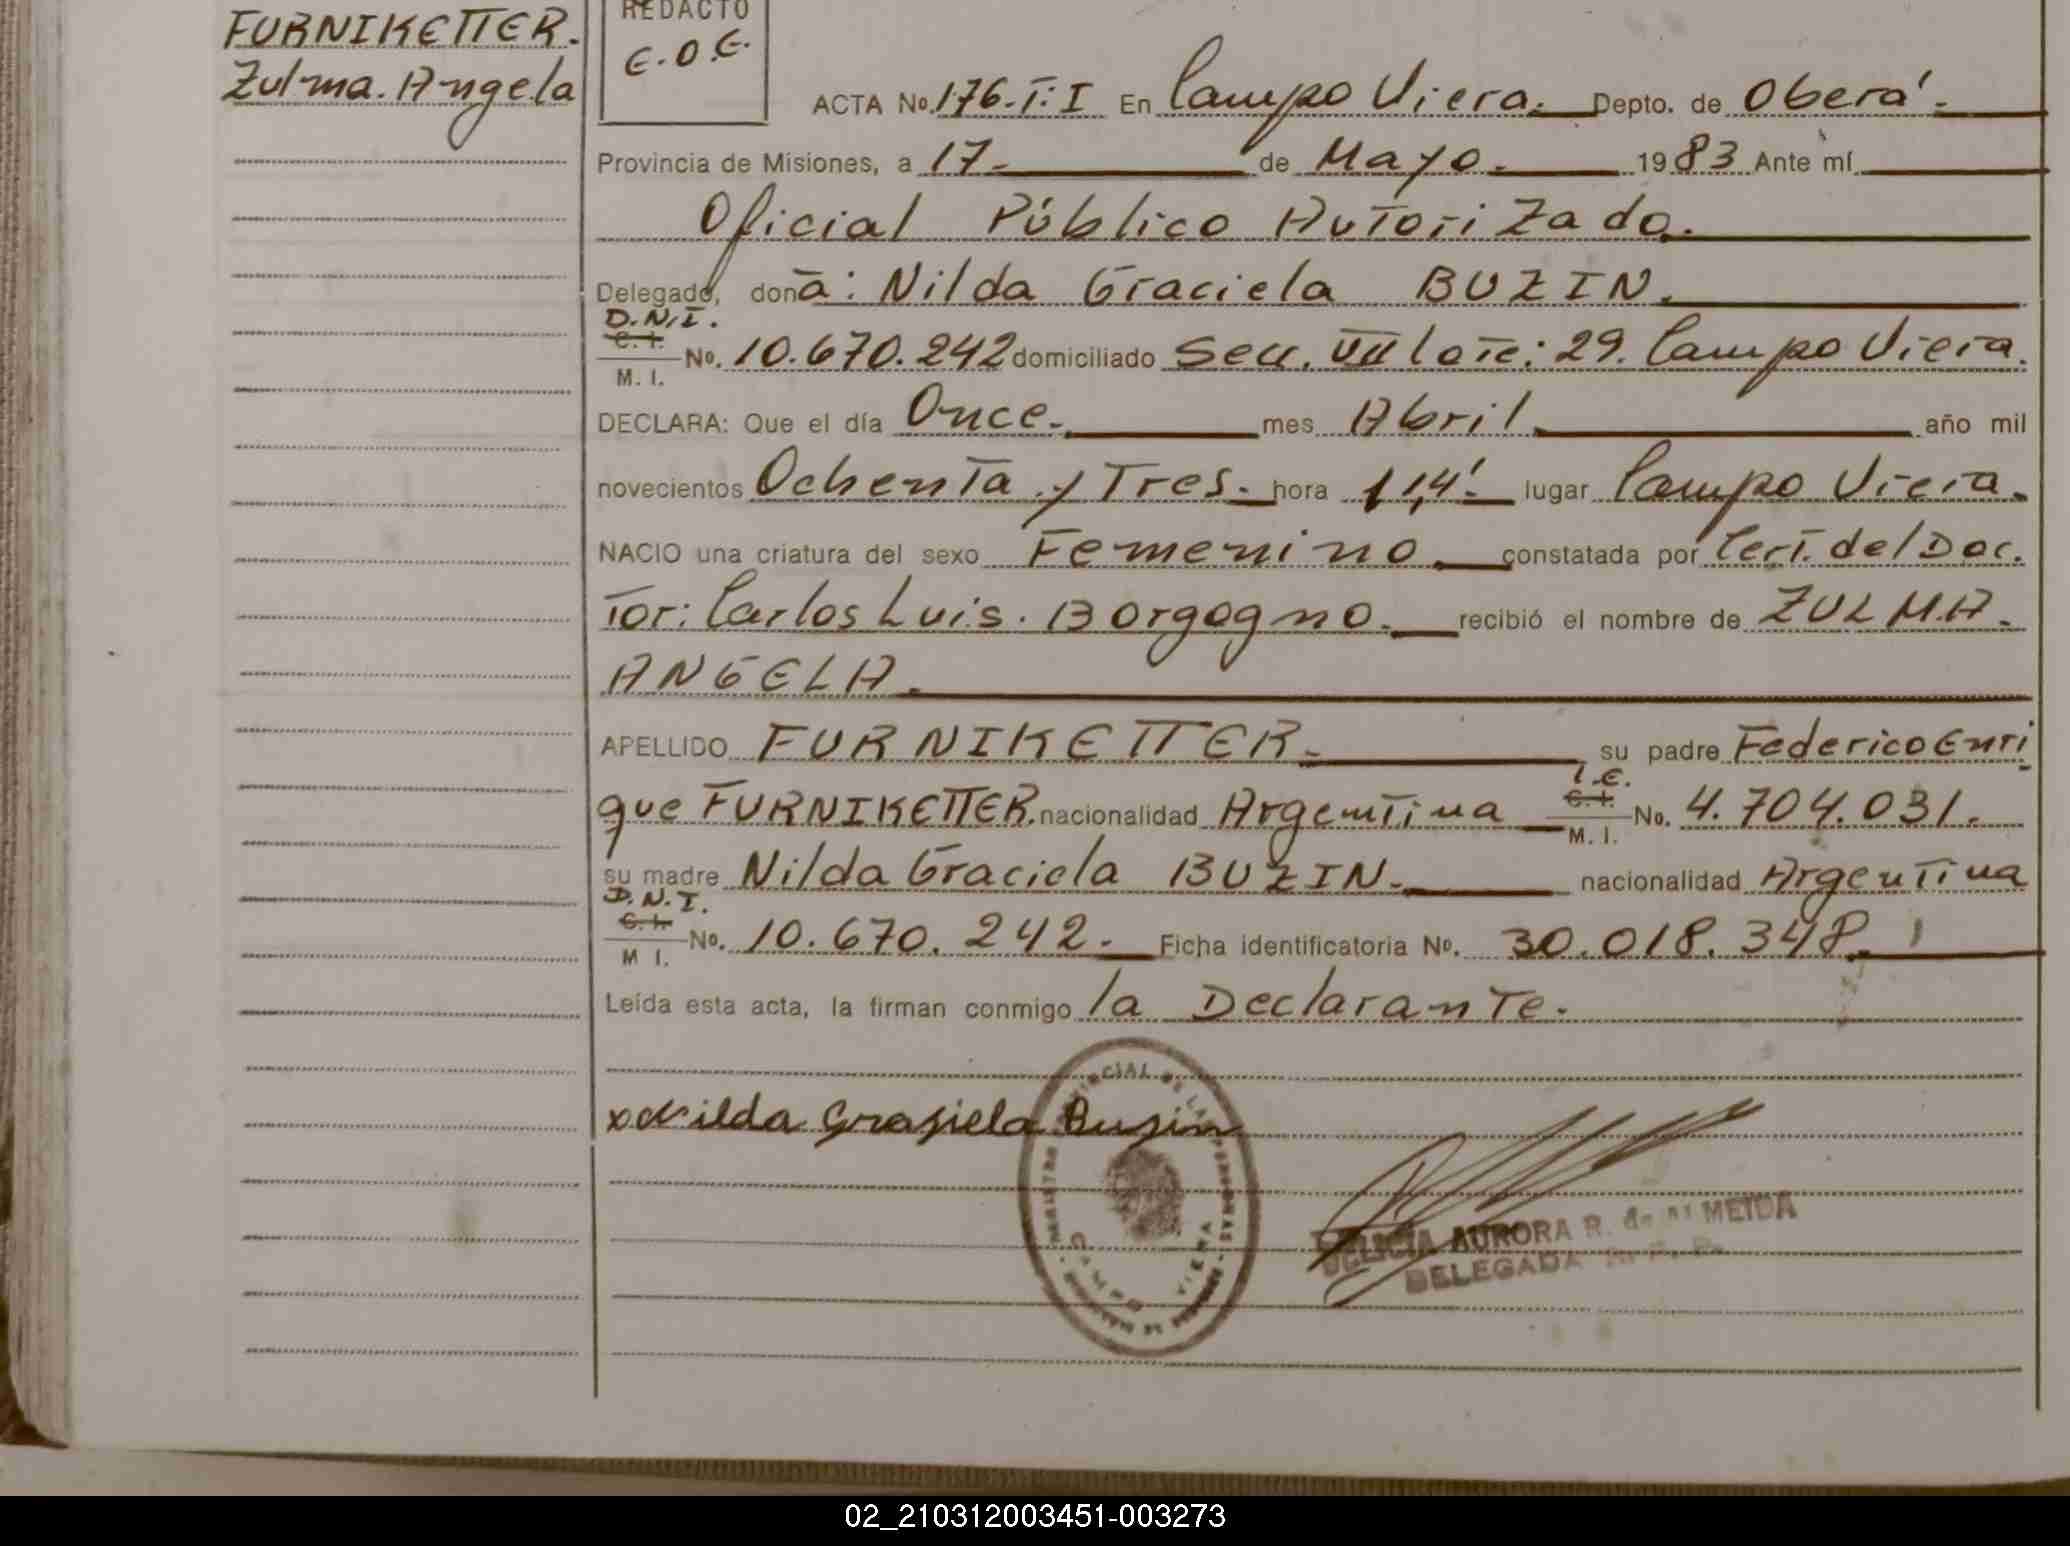 FURNIKETTER.
Zulma. Angela
REDACTO
E.O.E.
ACTA No. 176.T:I En Campo Viera. Depto. de Oberá.
Provincia de Misiones, a 17. de Mayo. 1983 Ante mí
Oficial Público Autorizado.
Delegado, dona: Nilda Graciela BUZIN.
D.N.I.
C. I.
M. I. No. 10.670.242 domiciliado Secc. VII lote: 29. Campo Viera.
DECLARA: Que el día Once. mes Abril año mil
novecientos Ochenta y Tres. hora lugar Campo Viera.
NACIO una criatura del sexo Femenino constatada por Cert. del Doc.
tor: Carlos Luis. Borgogno. recibió el nombre de ZULMA.
ANGELA.
APELLIDO FURNIKETTER. su padre Federico Enri
que FURNIKETTER. nacionalidad Argentina L.E. C. I. M. I. No. 4.704.031.
su madre Nilda Graciela BUZIN. nacionalidad Argentina
D.N.I.
C. I.
M I. No. 10.670.242. Ficha identificatoria No. 30.018.348.
Leída esta acta, la firman conmigo la Declarante.
x Nilda Grasiela Buzin
CAMPO VIERA
AURORA R. de ALMEIDA
DELEGADA
02_210312003451-003273